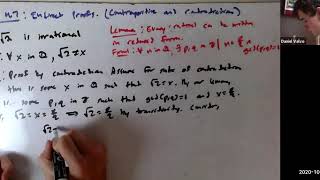 4.7: Indirect Proofs. (Contrapositive and contradiction)
√2 is irrational
Lemma: Every rational can be written
in reduced form.
∀ x in Q, √2 ≠ x
Proof by contradiction Assume for sake of contradiction
this is some x in Q such that √2 = x. By our lemma,
some p, q in Z such that gcd(p,q)=1 and x = p/q
√2 = x = p/q ⟹ √2 = p/q by transitivity.
√2 =
Daniel Valvo
2020-10